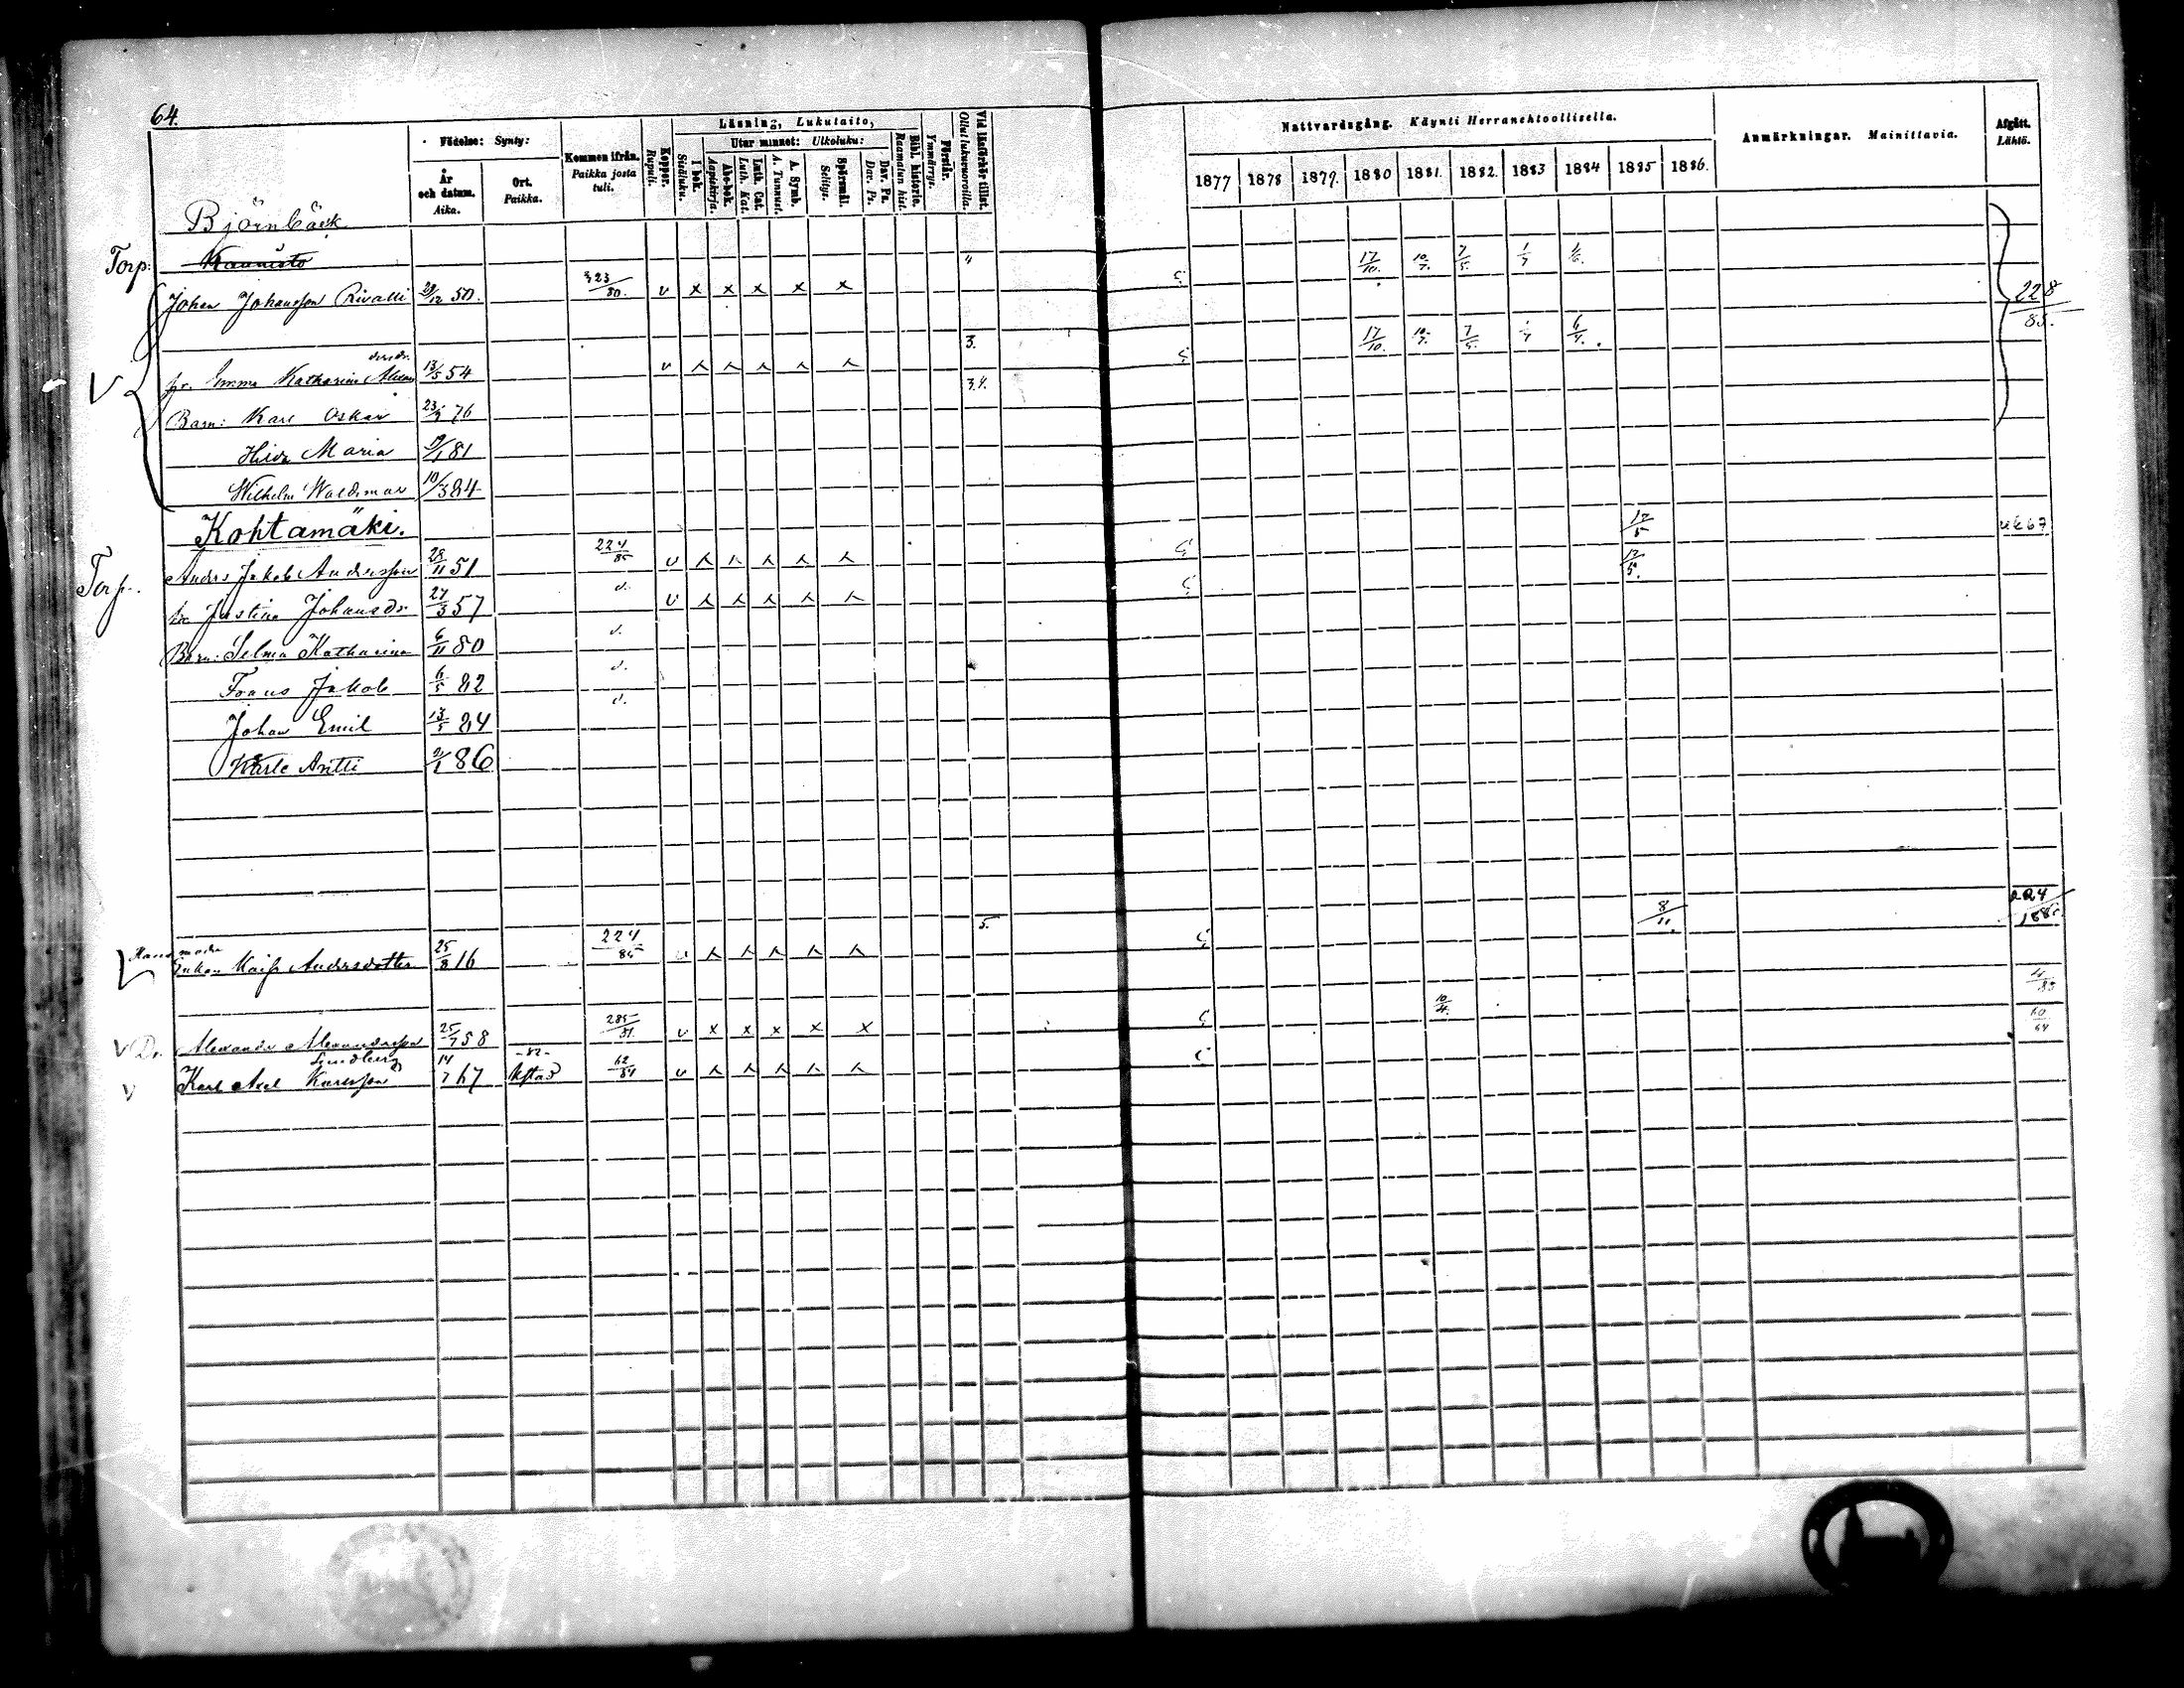 64.
Födelse: Synty:
År och datum. Aika.
Ort. Paikka.
Kommen ifrån. Paikka josta tuli.
Koppor. Rupuli.
Läsning, Lukutaito,
I bok. Sisäluku.
Utur minnet: Ulkoluku:
Abc-bok. Aapiskirja.
Luth. Cat. Luth. Kat.
A. Symb. A. Tunnust.
Spörsmål. Selitys.
Dav. Ps. Dav. Ps.
Bibl. historie. Raamatun hist.
Förstår. Ymmärrys.
Vid läsförhör tillst. Ollut lukuvuoroilla.
Nattvardsgång. Käynti Herranehtoollisella.
1877 1878 1879. 1880 1881. 1882. 1883 1884 1885 1886.
Anmärkningar. Mainittavia.
Afgått. Lähtö.
Björnbäck
Torp: Kaunisto 17/10. 10/7. 7/5. 1/7
Johan Johansson Rivalli 29/12 50. 323/80. v x x x x x 228/85.
3. 17/10. 10/7. 7/5. 1/7 6/7.
Emma Katharina 13/5 54 v
3.4.
Barn: Karl Oskar 76
Maria 81
Wilhelm Waldemar 10/3 84
Kohtamäki. 17/5
Torp. Anders Jakob Andersson 28/11 51 224/85 v
Justina Johansdr 27/3 57 d. v
Barn: Selma Katharina 6/11 80 d.
Frans Jakob 6/5 82 d.
Johan Emil 13/5 84 d.
Kaarle Antti 86
5. 8/11. 224/188
Enkan Kaisa Andersdotter 25/8 16 224/85
10/4.
Dr. Alexander Alexandersson 25/7 58 285/81. v x x x x x
Lindberg
Karl Axel Karlsson 14/7 67 62/84 v 60/84